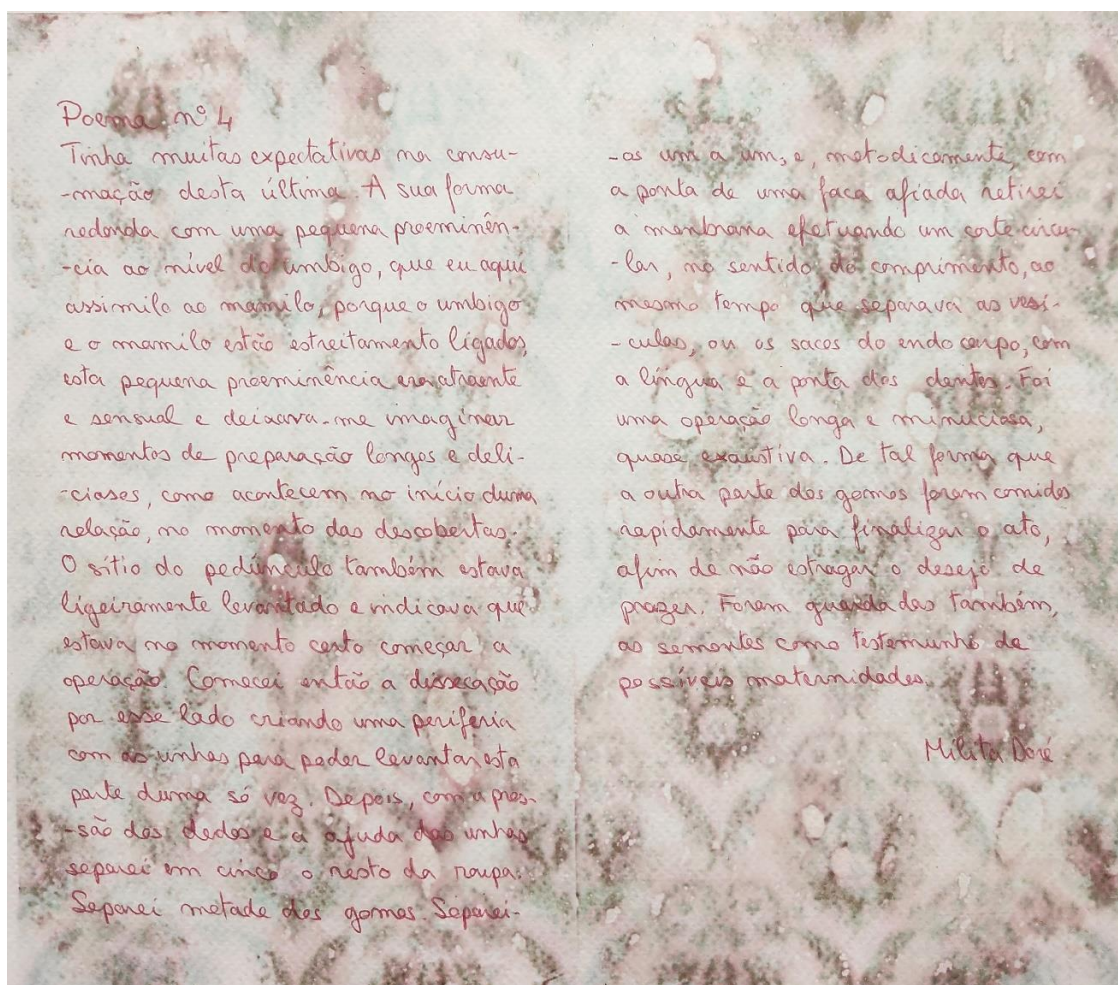 Poema nº 4
Tinha muitas expectativas na consu-
-mação desta última. A sua forma
redonda com uma pequena proeminên-
-cia ao nível do umbigo, que eu aqui
assimilo ao mamilo, porque o umbigo
e o mamilo estão estreitamento ligados,
esta pequena proeminência era atraente
e sensual e deixava-me imaginar
momentos de preparação longos e deli-
-ciosos, como acontecem no início duma
relação, no momento das descobertas.
O sítio do pedúnculo também estava
ligeiramente levantado e indicava que
estava no momento certo começar a
operação. Comecei então a dissecação
por esse lado criando uma periferia
com as unhas para poder levantar esta
parte duma só vez. Depois, com a pres-
-são dos dedos e a ajuda das unhas
separei em cinco o resto da roupa.
Separei metade dos gomos. Separei-
-os um a um, e, metodicamente, com
a ponta de uma faca afiada retirei
a membrana efetuando um corte circu-
-lar, no sentido do comprimento, ao
mesmo tempo que separava as vesí-
-culas, ou os sacos do endocarpo, com
a língua e a ponta dos dentes. Foi
uma operação longa e minuciosa,
quase exaustiva. De tal forma que
a outra parte dos gomos foram comidos
rapidamente para finalizar o ato,
afim de não estragar o desejo de
prazer. Foram guardadas também,
as sementes como testemunho de
possíveis maternidades.
Milita Doré